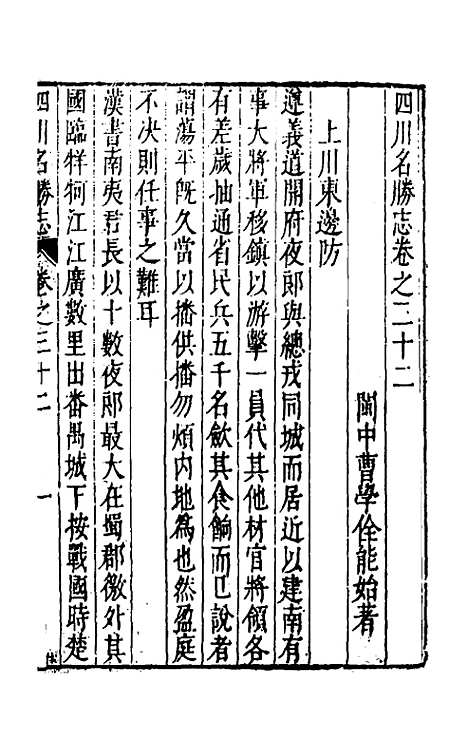 四川名勝志卷之三十二
閩中曹學佺能始著
上川東邊防
遵義道開府夜郎與總戎同城而居近以建南有
事大將軍移鎮以游擊一員代其他材官將領各
有差歲抽通省民兵五千名歛其食餉而已說者
謂蕩平旣久當以播供播勿煩内地爲也然盈庭
不决則任事之難耳
漢書南夷君長以十數夜郎最大在蜀郡徼外其
國臨牂牁江江廣數里出番禺城下按戰國時楚
四川名勝志 卷之三十二 一